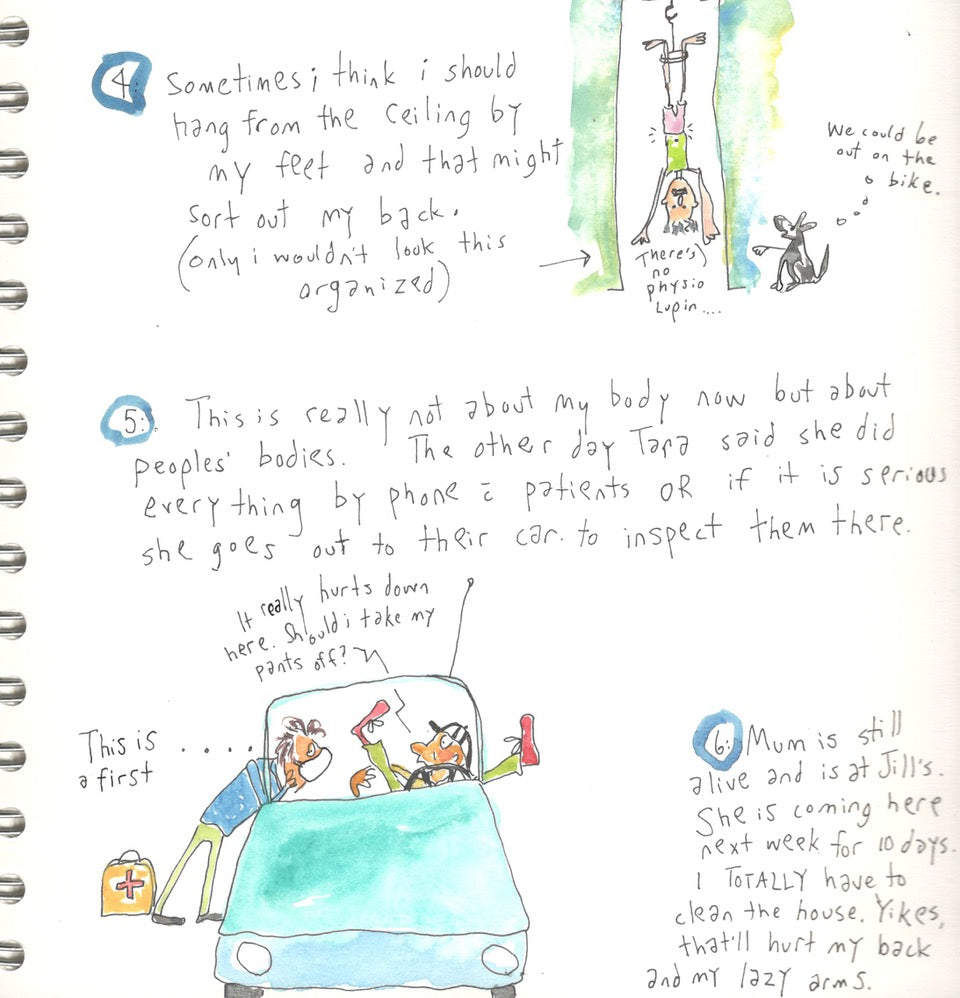 4.
Sometimes i think i should
hang from the ceiling by
my feet and that might
sort out my back.
(only i wouldn't look this
organized)
There's
no
physio
Lupin....
We could be
out on the
bike.
5:
This is really not about my body now but about
peoples' bodies. The other day Tara said she did
everything by phone c̄ patients OR if it is serious
she goes out to their car. to inspect them there.
It really hurts down
here. Should i take my
pants off?
This is ....
a first
6:
Mum is still
alive and is at Jill's.
She is coming here
next week for 10 days.
I TOTALLY have to
clean the house. Yikes,
that'll hurt my back
and my lazy arms.